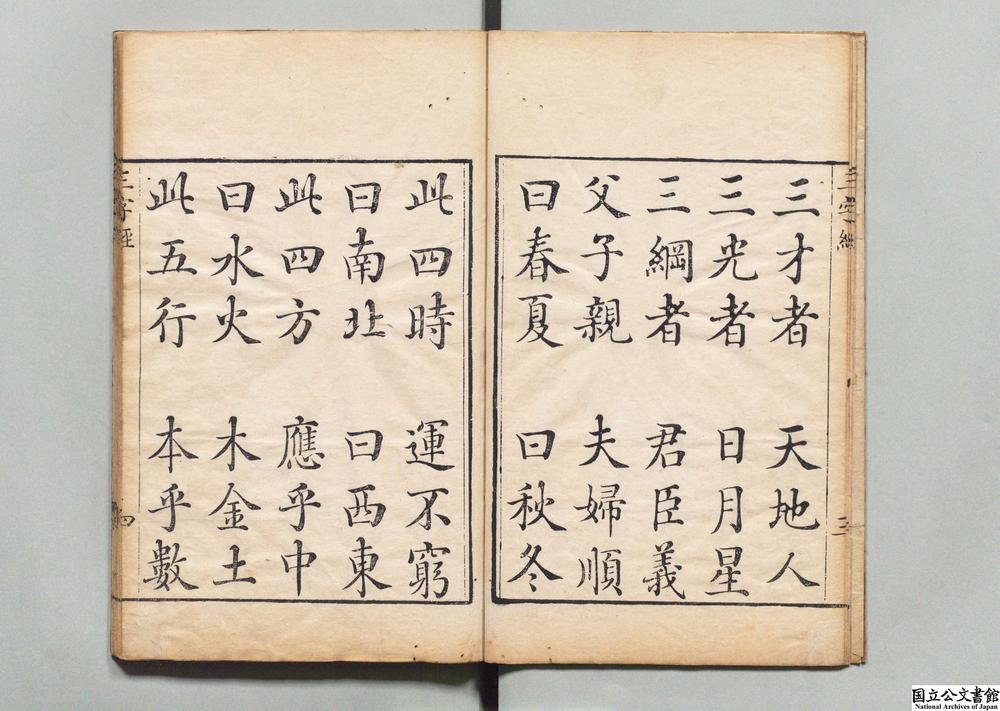 三字經
三才者　天地人
三光者　日月星
三綱者　君臣義
父子親　夫婦順
曰春夏　曰秋冬
三
此四時　運不窮
曰南北　曰西東
此四方　應乎中
曰水火　木金土
此五行　本乎數
三字經
四
国立公文書館
National Archives of Japan